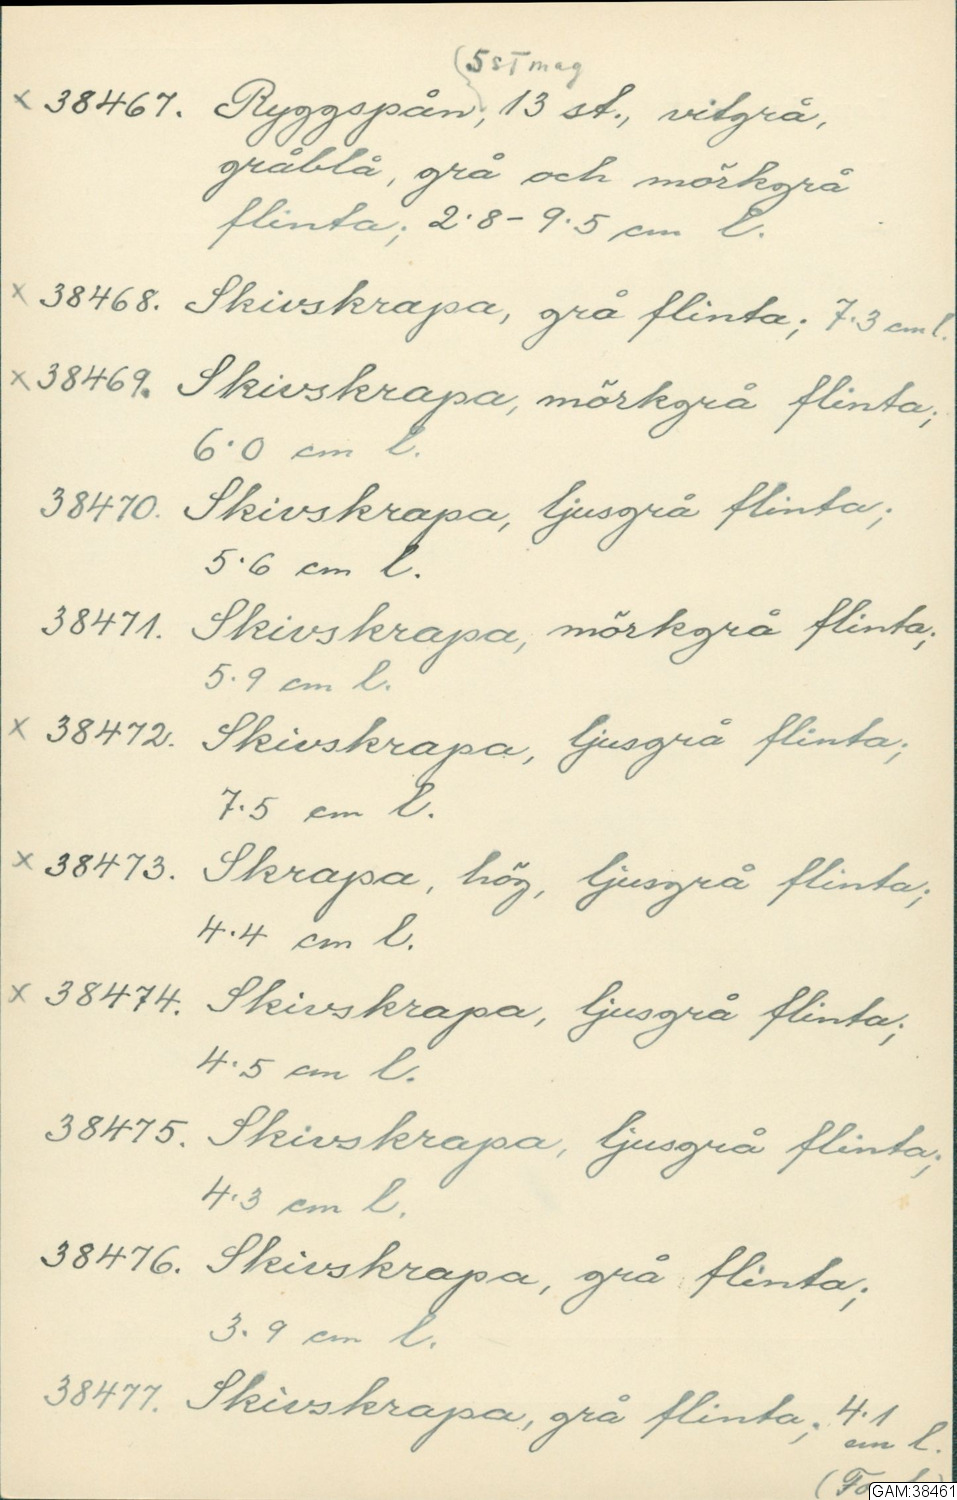 (5 st mag
x 38467. Ryggspån, 13 st., vitgrå,
gråblå, grå och mörkgrå
flinta; 2·8-9·5 cm l.
x 38468. Skivskrapa, grå flinta; 7·3 cm l.
x 38469. Skivskrapa, mörkgrå flinta;
6·0 cm l.
38470. Skivskrapa, ljusgrå flinta;
5·6 cm l.
38471. Skivskrapa, mörkgrå flinta;
5·9 cm l.
x 38472. Skivskrapa, ljusgrå flinta;
7·5 cm l.
x 38473. Skrapa, hög, ljusgrå flinta;
4·4 cm l.
x 38474. Skivskrapa, ljusgrå flinta;
4·5 cm l.
38475. Skivskrapa, ljusgrå flinta;
4·3 cm l.
38476. Skivskrapa, grå flinta;
3·9 cm l.
38477. Skivskrapa, grå flinta; 4·1
cm l.
GAM:38461